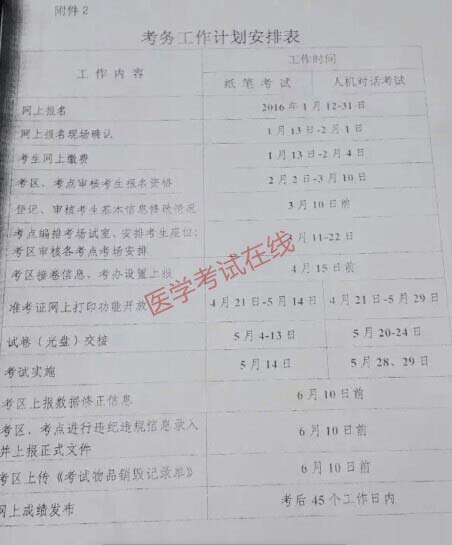 附件2
考务工作计划安排表
工作内容
工作时间
纸笔考试
人机对话考试
网上报名
2016年1月12-31日
网上报名现场确认
1月13日-2月1日
考生网上缴费
1月13日-2月4日
考区、考点审核考生报名资格
2月2日-3月10日
登记、审核考生基本信息修改情况
3月10日前
考点编排考场试室、安排考生座位;
考区审核各考点考场安排
月11-22日
考区接卷信息、考办设置上报
4月15日前
准考证网上打印功能开放
4月21日-5月14日
4月21日-5月29日
试卷(光盘)交接
5月4-13日
5月20-24日
考试实施
5月14日
5月28、29日
考区上报数据修正信息
6月10日前
考区、考点进行违纪违规信息录入
并上报正式文件
6月10日前
考区上传《考试物品销毁记录单》
6月10日前
网上成绩发布
考后45个工作日内
医学考试在线